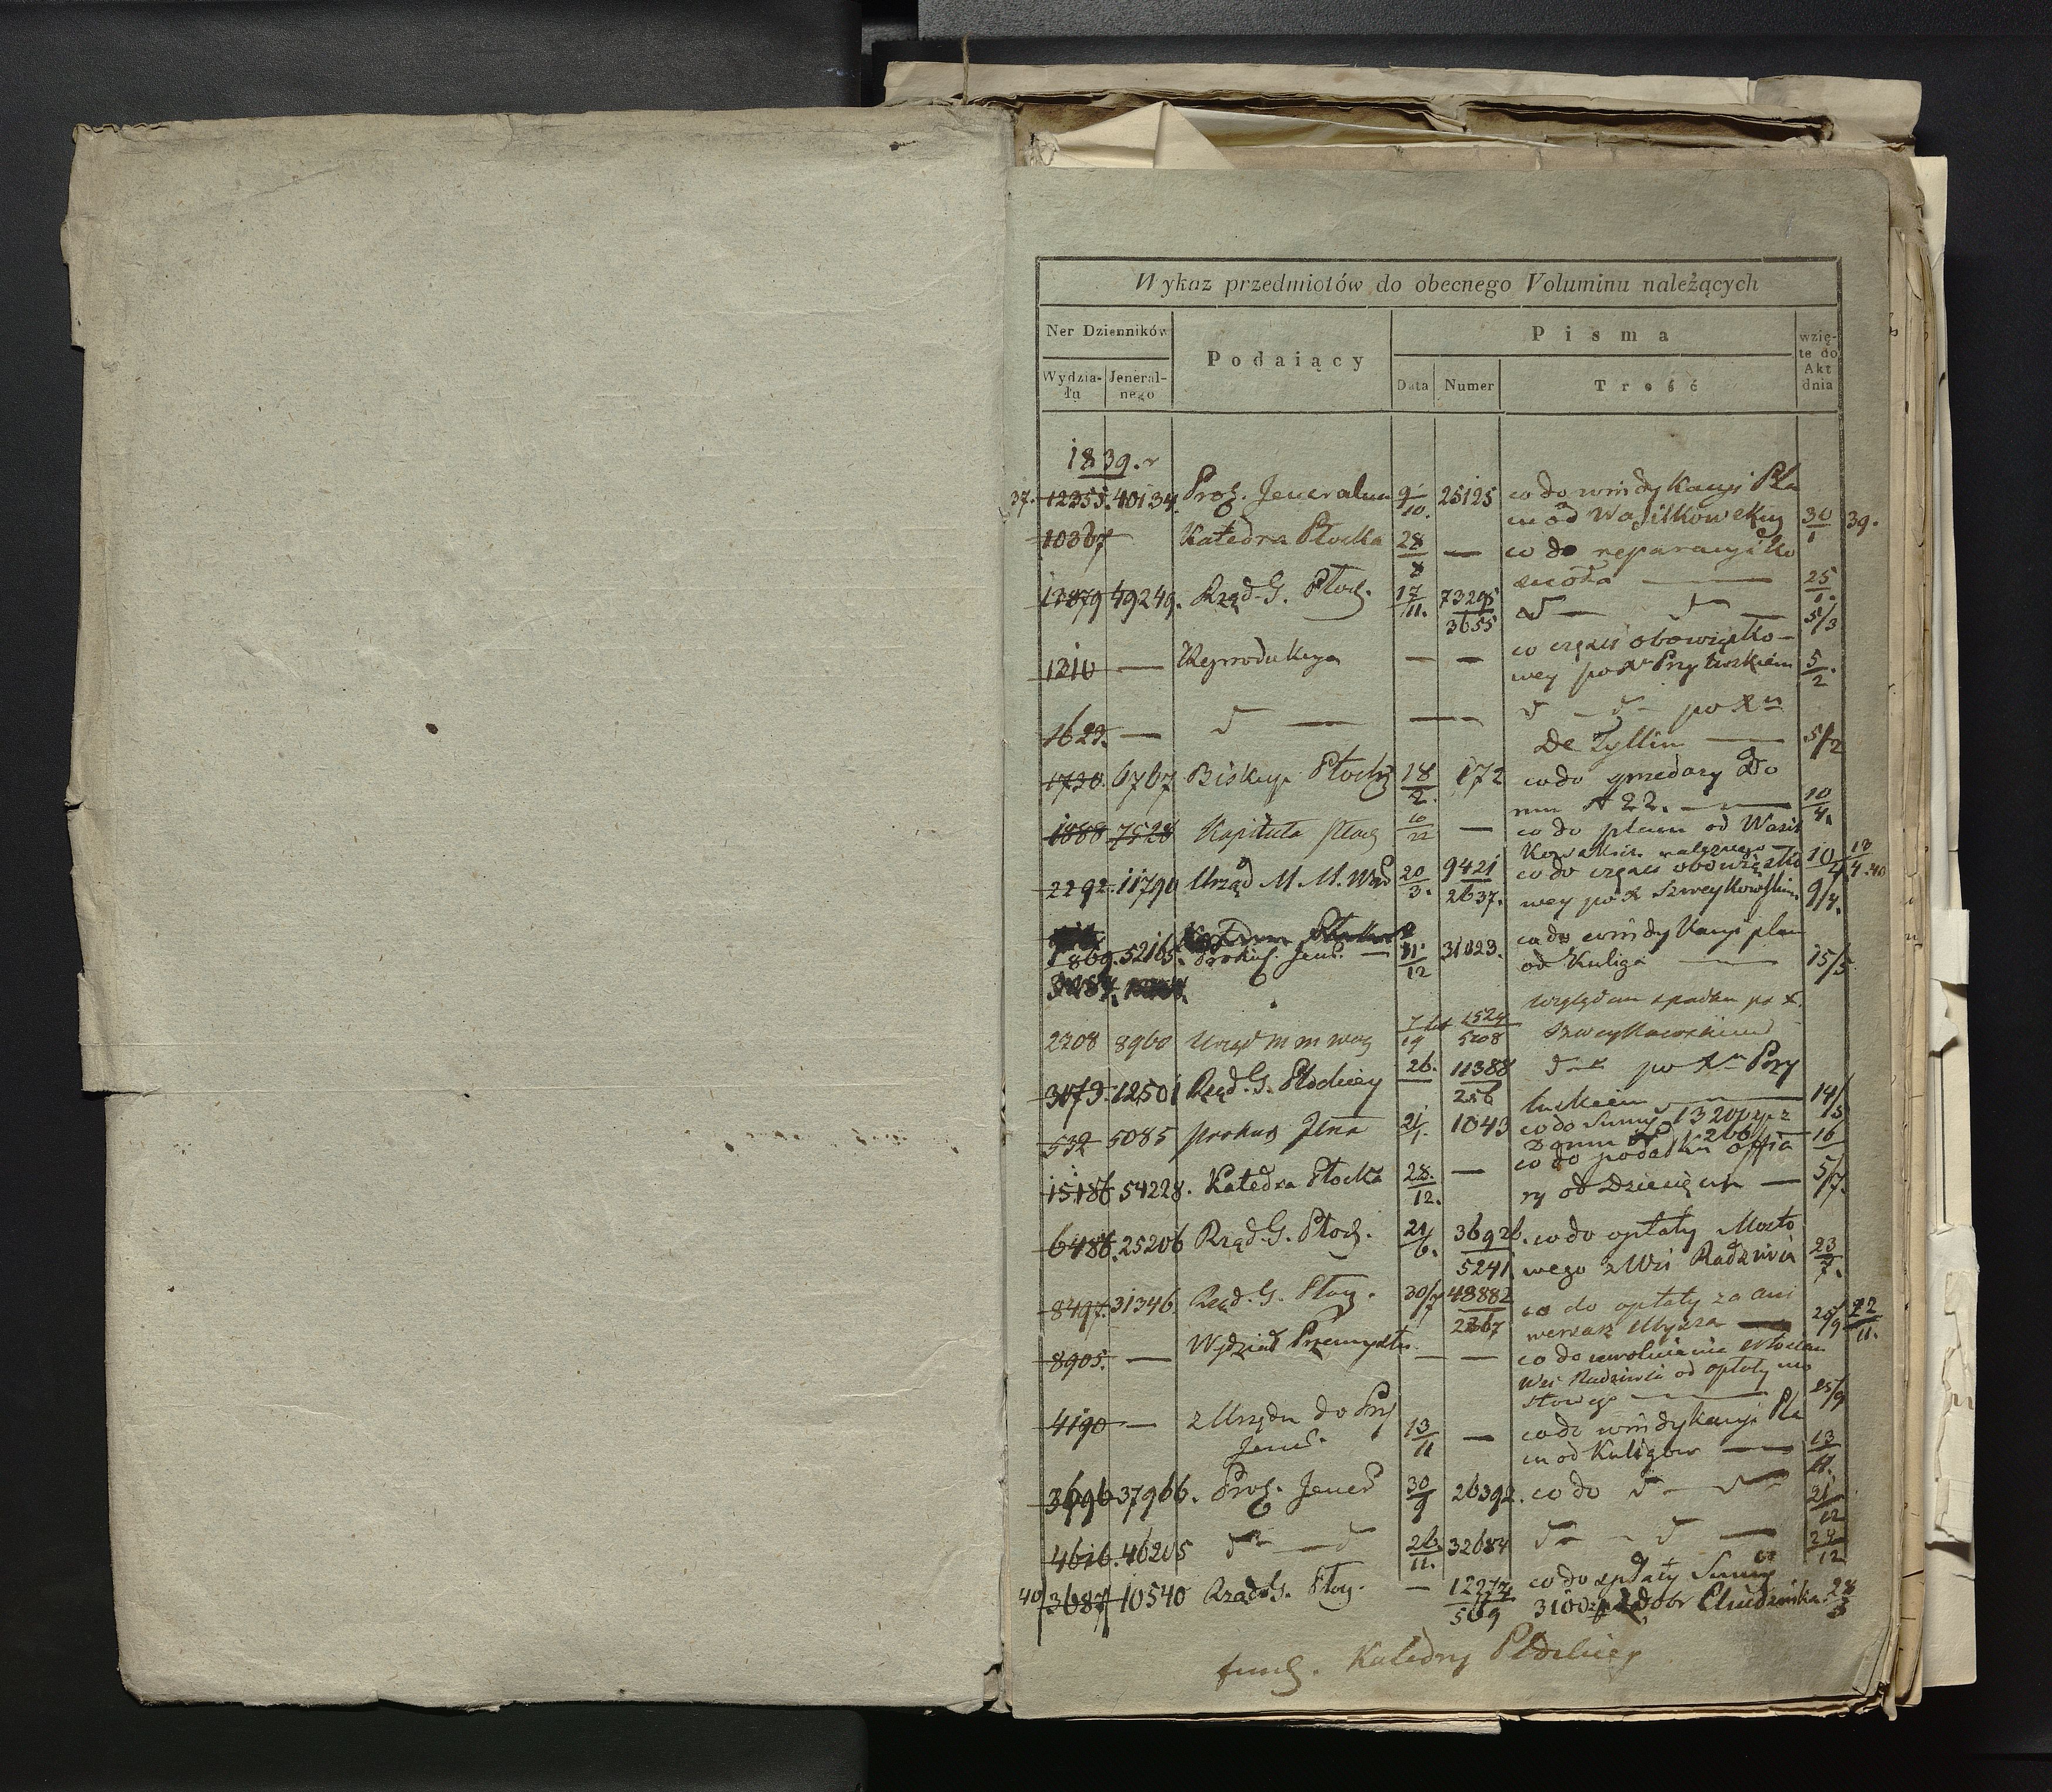 Wykaz przedmiotów do obecnego Voluminu należących
Ner Dzienników
Podaiący
Pisma
wzię-
te do
Akt
dnia
Wydzia-
łu
Jeneral-
nego
Data
Numer
Treść
1839. r
37. 12355. 40134. Prok. Jeneralna 9/10. 25125 co do windykacyi Pla
cu od Wasilkowskiey 30/1 39.
10367 Katedra Płocka 28/8 — co do reparacyi ko
scioła — 25/1.
49249. Rząd. G. Płock. 17/11. 73295/3655 5/3
1310 — Reprodukcya — — co części obowiązko-
wey po Xu Przyłuskiem 5/2.
1629. — — — po Xu
De Zyllin — 5/2
1730. 6767 Biskup Płocki 18/2. 172 co do sprzedarzy Do
mu N 22. — 10/4.
1888 7528 Kapituła Płock — co do placu od Wasil
kowskich należnego 10/4 13/4.40
2292. 11790 Urząd M. M. War 20/3. 9421/2637. co do części obowiązko
wey po X Szweykowskim 9/4.
1869. 52165. Prokur. Jener. — 11/12 31023. co do windykacyi placu
od Kuliga — 15/5
2208 8960 Urząd M M Wars 1524/5208 względem spadku po X.
Szweykowskim
3079. 12501 Rząd. G. Płockiey 26. 11388/256 po Xu Przy
łuskiem — 14/5
532 5085 Prokur Jena 21/1. 1043 co do Summy 13200
Domu N 1266
15186 54228. Katedra Płocka 28/12. — co do podatku ofia
ry od Dziesięcin — 5/7.
6486. 25206 Rząd. G. Płock. 21/6. 36926./5241. co do opłaty Mosto
wego z Wsi Radziwia 23/7.
8497. 31346. Rząd. G. Płock. 30/7 48882/2367 co do opłaty za ani
wersarz 25/9 22/11.
8905. — Wydział Przemysłu — — co do uwolnienia Włościan
Wsi Radziwia od opłaty mo
stowego — 25/9
4190 — z Urzędu do Prok
Jener. 13/11 — co do windykacyi Pla
cu od Kuligów — 13/11.
3696 37966. Prok. Jener 30/9 26392. co do 21/12
4616. 46205 26/11. 32684 24/12
40 3687 10540 Rząd G. Płock. — 12277/569 co do spłaty Summy
3100 z dóbr Chudzinka. 28/3
fund. Katedry Płockiey